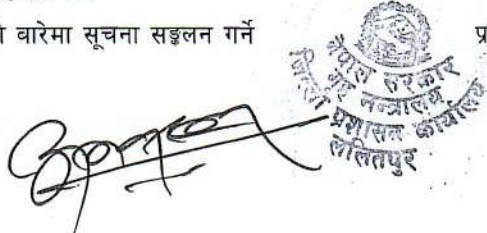 बारेमा सूचना सङ्कलन गर्ने
नेपाल सरकार
गृह मन्त्रालय
जिल्ला प्रशासन कार्यालय
ललितपुर